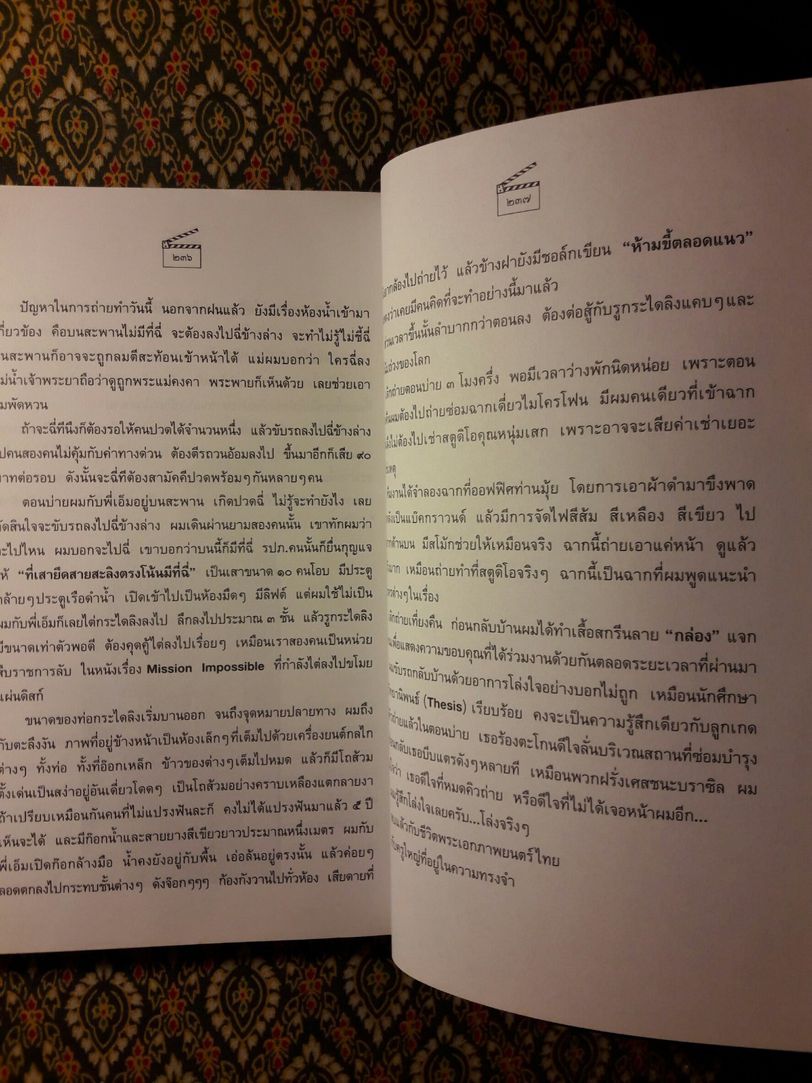 ๒๓๖
ปัญหาในการถ่ายทำวันนี้ นอกจากฝนแล้ว ยังมีเรื่องห้องน้ำเข้ามา
กี่ยวข้อง คือบนสะพานไม่มีที่ฉี่ จะต้องลงไปฉี่ข้างล่าง จะทำไม่รู้ไม่ชี้ฉี่
นสะพานก็อาจจะถูกลมตีสะท้อนเข้าหน้าได้ แม่ผมบอกว่า ใครฉี่ลง
ม่น้ำเจ้าพระยาถือว่าดูถูกพระแม่คงคา พระพายก็เห็นด้วย เลยช่วยเอา
มพัดหวน
ถ้าจะฉี่ทีนึงก็ต้องรอให้คนปวดได้จำนวนหนึ่ง แล้วขับรถลงไปฉี่ข้างล่าง
ปคนสองคนไม่คุ้มกับค่าทางด่วน ต้องตีรถวนอ้อมลงไป ขึ้นมาอีกก็เสีย ๙๐
าทต่อรอบ ดังนั้นจะฉี่ทีต้องสามัคคีปวดพร้อมๆกันหลายๆคน
ตอนบ่ายผมกับพี่เอ็มอยู่บนสะพาน เกิดปวดฉี่ ไม่รู้จะทำยังไง เลย
ัดสินใจจะขับรถลงไปฉี่ข้างล่าง ผมเดินผ่านยามสองคนนั้น เขาทักผมว่า
ะไปไหน ผมบอกจะไปฉี่ เขาบอกว่าบนนี้ก็มีที่ฉี่ รปภ.คนนั้นก็ยื่นกุญแจ
ห้ “ที่เสายึดสายสะลิงตรงโน้นมีที่ฉี่” เป็นเสาขนาด ๑๐ คนโอบ มีประตู
ล้ายๆประตูเรือดำน้ำ เปิดเข้าไปเป็นห้องมืดๆ มีลิฟต์ แต่ผมใช้ไม่เป็น
ผมกับพี่เอ็มก็เลยไต่กระไดลิงลงไป ลึกลงไปประมาณ ๓ ชั้น แล้วรูกระไดลิง
มีขนาดเท่าตัวพอดี ต้องคุดคู้ไต่ลงไปเรื่อยๆ เหมือนเราสองคนเป็นหน่วย
สืบราชการลับ ในหนังเรื่อง Mission Impossible ที่กำลังไต่ลงไปขโมย
แผ่นดิสก์
ขนาดของท่อกระไดลิงเริ่มบานออก จนถึงจุดหมายปลายทาง ผมถึง
กับตะลึงงัน ภาพที่อยู่ข้างหน้าเป็นห้องเล็กๆที่เต็มไปด้วยเครื่องยนต์กลไก
ต่างๆ ทั้งท่อ ทั้งที่อ๊อกเหล็ก ข้าวของต่างๆเต็มไปหมด แล้วก็มีโถส้วม
ตั้งเด่นเป็นสง่าอยู่อันเดี่ยวโดดๆ เป็นโถส้วมอย่างคราบเหลืองแตกลายงา
ถ้าเปรียบเหมือนกันคนที่ไม่แปรงฟันละก็ คงไม่ได้แปรงฟันมาแล้ว ๕ ปี
เห็นจะได้ และมีก๊อกน้ำและสายยางสีเขียวยาวประมาณหนึ่งเมตร ผมกับ
พี่เอ็มเปิดก๊อกล้างมือ น้ำคงยังอยู่กับพื้น เอ่อล้นอยู่ตรงนั้น แล้วค่อยๆ
ลอดตกลงไปกระทบชั้นต่างๆ ดังจ๊อกๆๆๆ ก้องกังวานไปทั่วห้อง เสียดายที่
๒๓๗
กล้องไปถ่ายไว้ แล้วข้างฝายังมีชอล์กเขียน “ห้ามขี้ตลอดแนว”
งว่าเคยมีคนคิดที่จะทำอย่างนี้มาแล้ว
เวลาขึ้นนั้นลำบากกว่าตอนลง ต้องต่อสู้กับรูกระไดลิงแคบๆและ
ถ่วงของโลก
ถ่ายตอนบ่าย ๓ โมงครึ่ง พอมีเวลาว่างพักนิดหน่อย เพราะตอน
ผมต้องไปถ่ายซ่อมฉากเดี่ยวไมโครโฟน มีผมคนเดียวที่เข้าฉาก
ไม่ต้องไปเช่าสตูดิโอคุณหนุ่มเสก เพราะอาจจะเสียค่าเช่าเยอะ
หตุ
มงานได้จำลองฉากที่ออฟฟิศท่านมุ้ย โดยการเอาผ้าดำมาขึงพาด
ลังเป็นแบ็คกราวนด์ แล้วมีการจัดไฟสีส้ม สีเหลือง สีเขียว ไป
ด้านบน มีสโม้กช่วยให้เหมือนจริง ฉากนี้ถ่ายเอาแค่หน้า ดูแล้ว
มาก เหมือนถ่ายทำที่สตูดิโอจริงๆ ฉากนี้เป็นฉากที่ผมพูดแนะนำ
ต่างๆในเรื่อง
ลิกถ่ายเที่ยงคืน ก่อนกลับบ้านผมได้ทำเสื้อสกรีนลาย “กล่อง” แจก
เพื่อแสดงความขอบคุณที่ได้ร่วมงานด้วยกันตลอดระยะเวลาที่ผ่านมา
ขับรถกลับบ้านด้วยอาการโล่งใจอย่างบอกไม่ถูก เหมือนนักศึกษา
ยานิพนธ์ (Thesis) เรียบร้อย คงจะเป็นความรู้สึกเดียวกับลูกเกด
ถ่ายแล้วในตอนบ่าย เธอร้องตะโกนดีใจลั่นบริเวณสถานที่ซ่อมบำรุง
กลับเธอบีบแตรดังๆหลายที เหมือนพวกฝรั่งเศสชนะบราซิล ผม
ว่า เธอดีใจที่หมดคิวถ่าย หรือดีใจที่ไม่ได้เจอหน้าผมอีก...
รู้สึกโล่งใจเลยครับ...โล่งจริงๆ
แล้วกับชีวิตพระเอกภาพยนตร์ไทย
ครูใหญ่ที่อยู่ในความทรงจำ